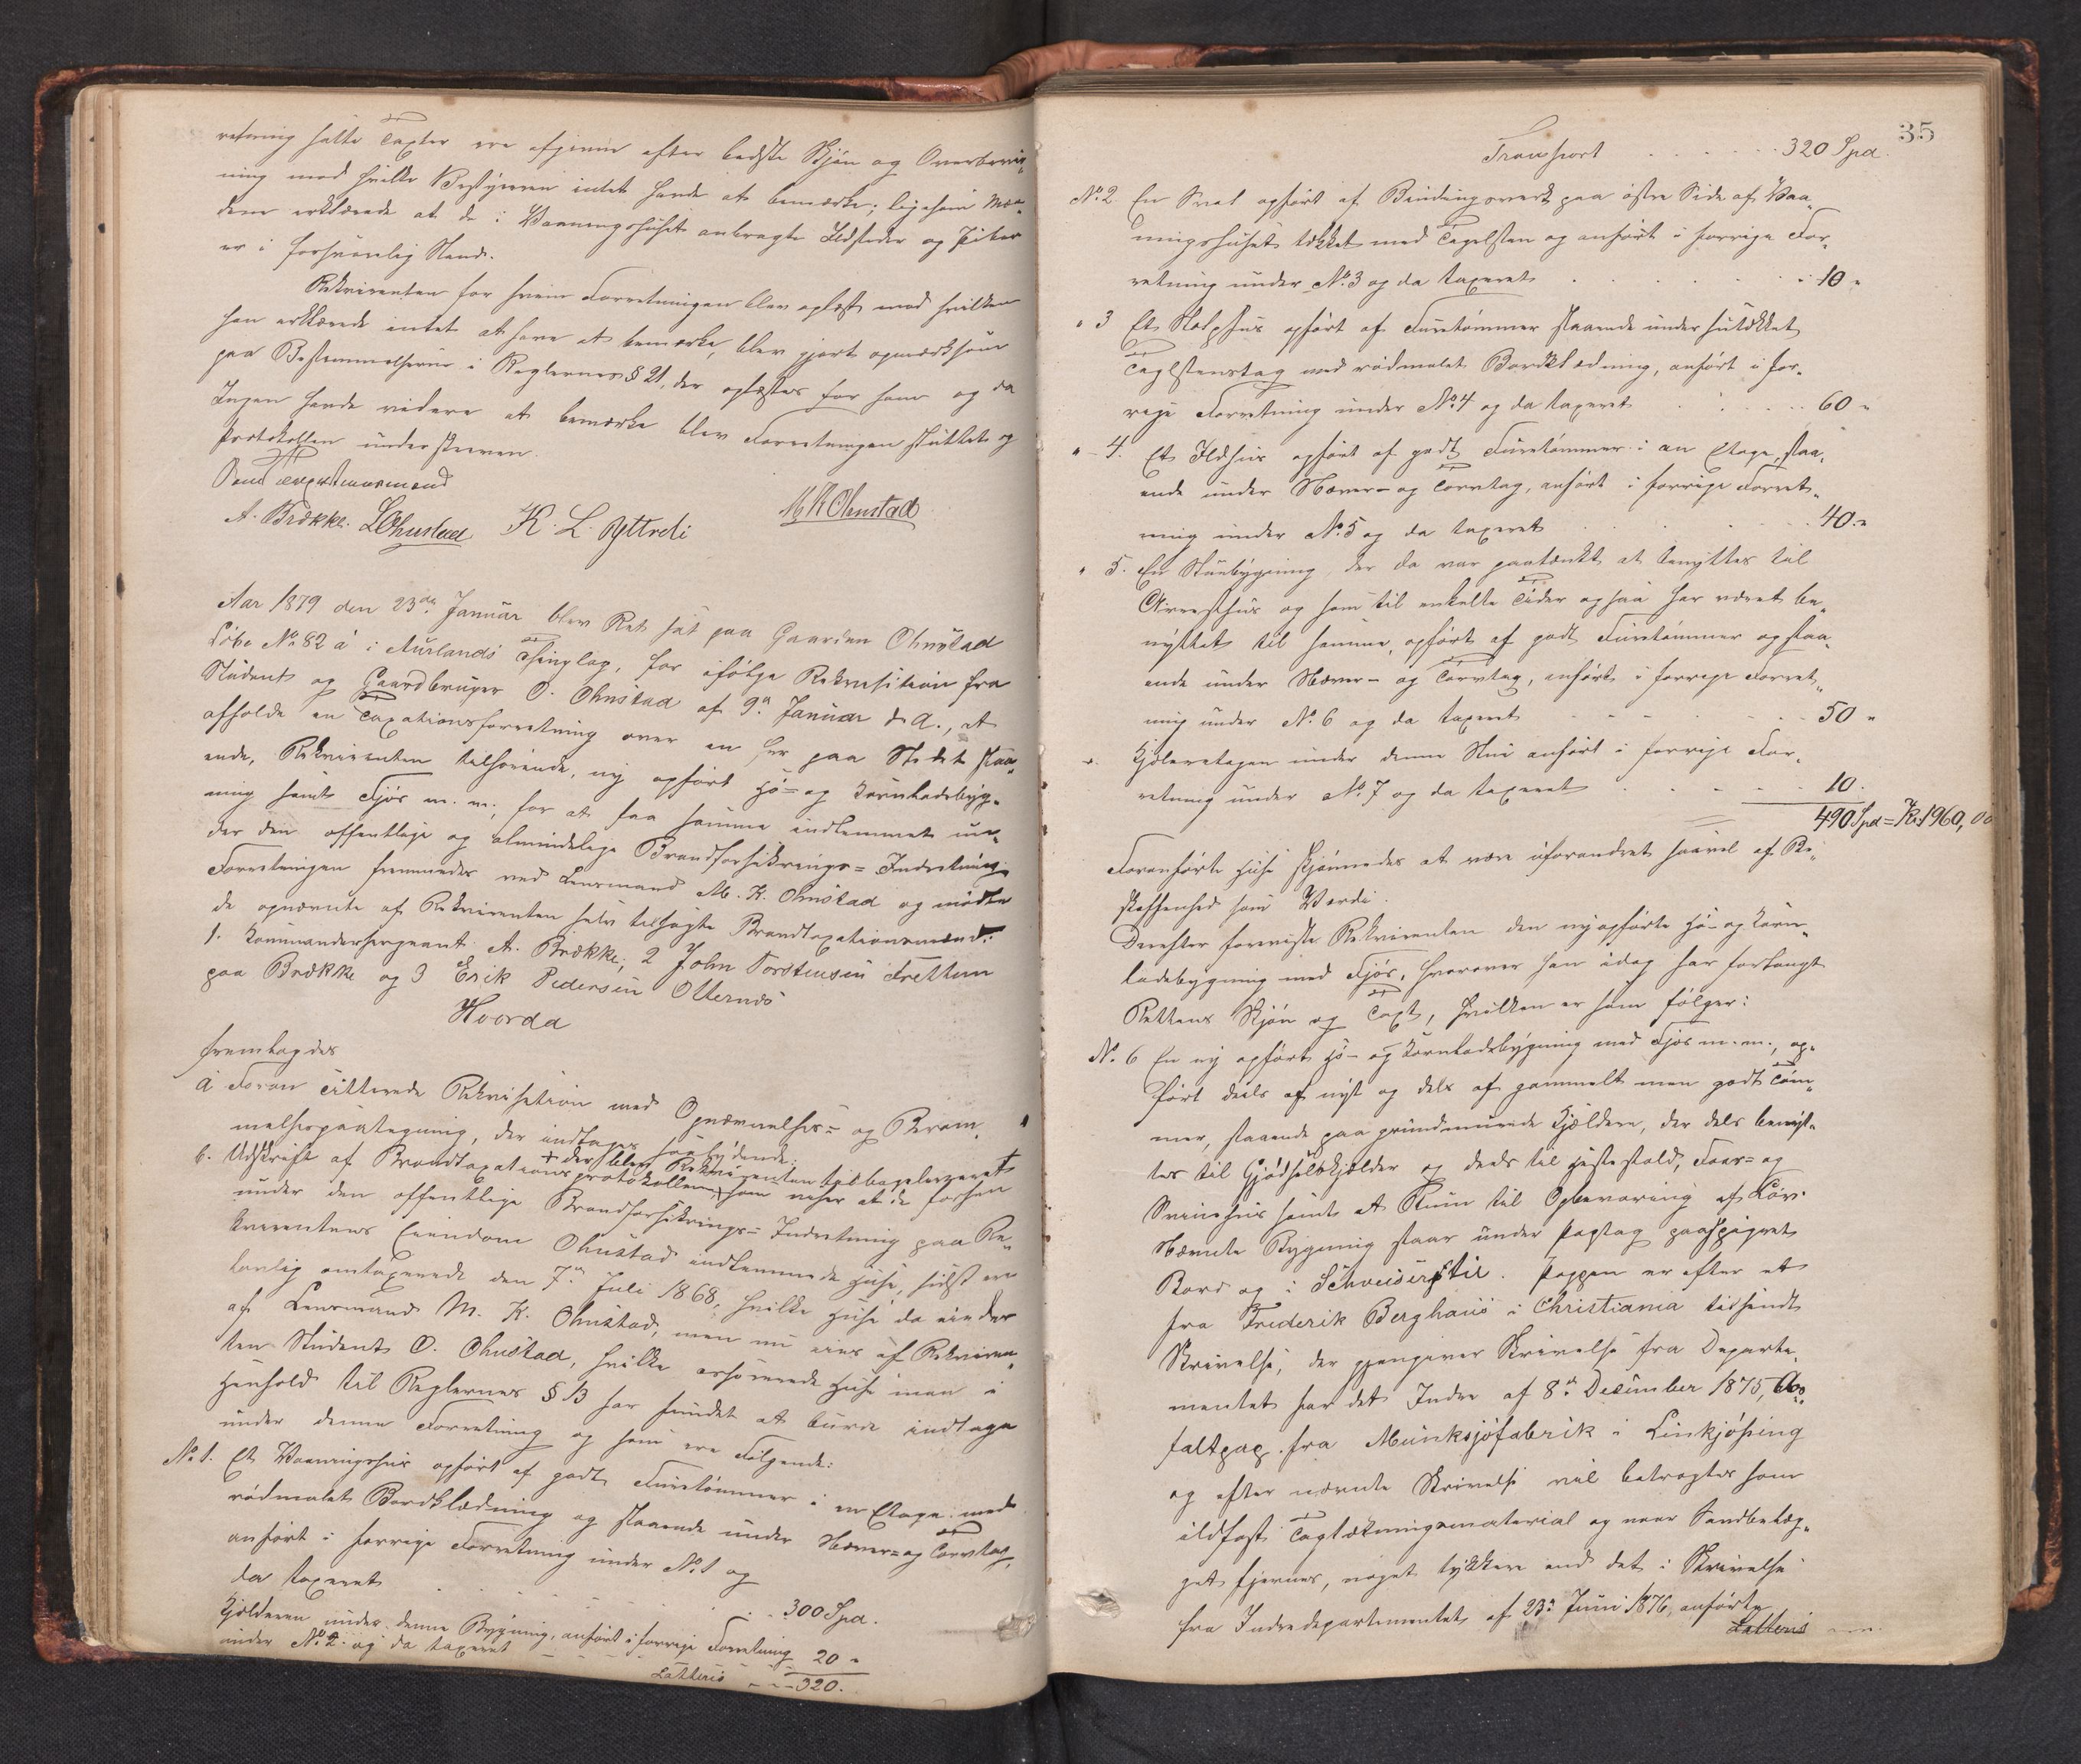 retning satte Taxter ere afgivne efter bedste Skjøn og Overbeviis-
ning mod hvilke Bestyreren intet havde at bemærke; ligesom Mæn-
dene erklærede at de i Vaaningshuset anbragte Ildsteder og Piber
er i forsvarlig Stand.
Rekvirenten for hvem Forretningen blev oplæst mod hvilken
han erklærede intet at have at bemærke, blev gjort opmærksom
paa Bestemmelserne i Reglernes § 21, der oplæstes for ham og da
Ingen havde videre at bemærke blev Forretningen sluttet og
Protokollen underskreven.
A. Brække. LOhnstad K. L. Yttreli MKOhnstad
Aar 1879 den 23de Januar blev Ret sat paa Gaarden Ohnstad
Løbe No 82 a i Aurlands Thinglag, for ifølge Rekvisition fra
Student og Gaardbruger O. Ohnstad af 9de Januar d. A., at
afholde en Taxationsforretning over en her paa Stedet staa-
ende, Rekvirenten tilhørende, ny opført Hø- og Kornladebyg-
ning samt Fjøs m. m., for at faa samme indlemmet un-
der den offentlige og almindelige Brandforsikrings-Indretning.
Forretningen fremmedes ved Lensmand M. K. Ohnstad og mødte
de opnævnte af Rekvirenten selv tilsagte Brandtaxationsmænd:
1. Kommandersergeant A. Brække, 2 John Torstensen Frettum
paa Brække og 3 Erik Pedersen Otternes
Hvorda
fremlagdes
a Foran citterede Rekvisition med Opnævnelses- og Beram-
melsespaategning, der indtages saalydende:
+ der blev Rekvirenten tilbageleveret
b. Udskrift af Brandtaxationsprotokollen, + som viser at de forhen
under den offentlige Brandforsikrings-Indretning paa Re-
kvirentens Eiendom Ohnstad indlemmede Huse, sidst ere
lovlig omtaxerede den 7de Juli 1868, hvilke Huse da eiedes
af Lensmand M. K. Ohnstad, men nu eies af Rekviren-
ten Student O. Ohnstad, hvilke assurerede Huse man i
Henhold til Reglernes § 13 har fundet at burde indtage
under denne Forretning og som ere Følgende:
No 1. Et Vaaningshus opført af godt Furetømmer i en Etage med
rødmalet Bordklædning og staaende under Næver- og Torvtag,
anført i forrige Forretning under No 1 og
da taxeret . . . 300 Spd.
Kjelderen under denne Bygning, anført i forrige Forretning
under No 2 og da taxeret 20 "
Latteris - - - 320.
35
Transport . . . . . . 320 Spd.
No 2 En Sval opført af Bindingsverk paa østre Side af Vaa-
ningshuset tækket med Tagelsten og anført i forrige For-
retning under No 3 og da taxeret . . . . 10 "
" 3 Et Stolphus opført af Furetømmer staaende under hultækket
Taglstenstag med rødmalet Bordklædning, anført i for-
rige Forretning under No 4 og da taxeret . . . 60 "
" 4. Et Ildhus opført af godt Furetømmer i en Etage, staa-
ende under Næver- og Torvtag, anført i forrige Forret-
ning under No 5 og da taxeret . . . 40. "
" 5. En Stuebygning der da var paatænkt at benyttes til
Arresthus og som til enkelte Tider ogsaa har været be-
nyttet til samme, opført af godt Furetømmer og staa-
ende under Næver- og Torvtag, anført i forrige Forret-
ning under No 6 og da taxeret - - - 50 "
". Kjelderetagen under denne Stue anført i forrige For-
retning under No 7 og da taxeret . . . 10.
490 Spd = Kr 1960,00
Foranførte Huse skjønnedes at være uforandret saavel af Be-
skaffenhed som Værdi.
Derefter foreviste Rekvirenten den nyopførte Hø- og Korn-
ladebygning med Fjøs, hvorover han idag har forlangt
Rettens Skjøn og Taxt, hvilken er som følger:
No. 6 En ny opført Hø- og Kornladebygning med Fjøs m. m., op-
ført deels af nyt og dels af gammelt men godt Tøm-
mer, staaende paa grundmurede Kjeldere, der dels benyt-
tes til Gjødselskjelder og deels til Hestestald, Faar- og
Svinehus samt et Rum til Opbevaring af Løv.
Nævnte Bygning staar under Paptag paaspigret
Bord og i Schveiserstil. Pappen er efter et
fra Frederik Berghaus i Christiania tilsendt
Skrivelse, der gjengiver Skrivelse fra Departe-
mentet for det Indre af 8de December 1875, As-
faltpap fra Munksjøfabrik i Linkjøping
og efter nævnte Skrivelse vil betragtes som
ildfast Tagtækningsmaterial og naar Sandbelæg-
get fjernes, noget tykkere end det i Skrivelse
fra Indredepartementet af 23de Juni 1876, anførte
Latteris